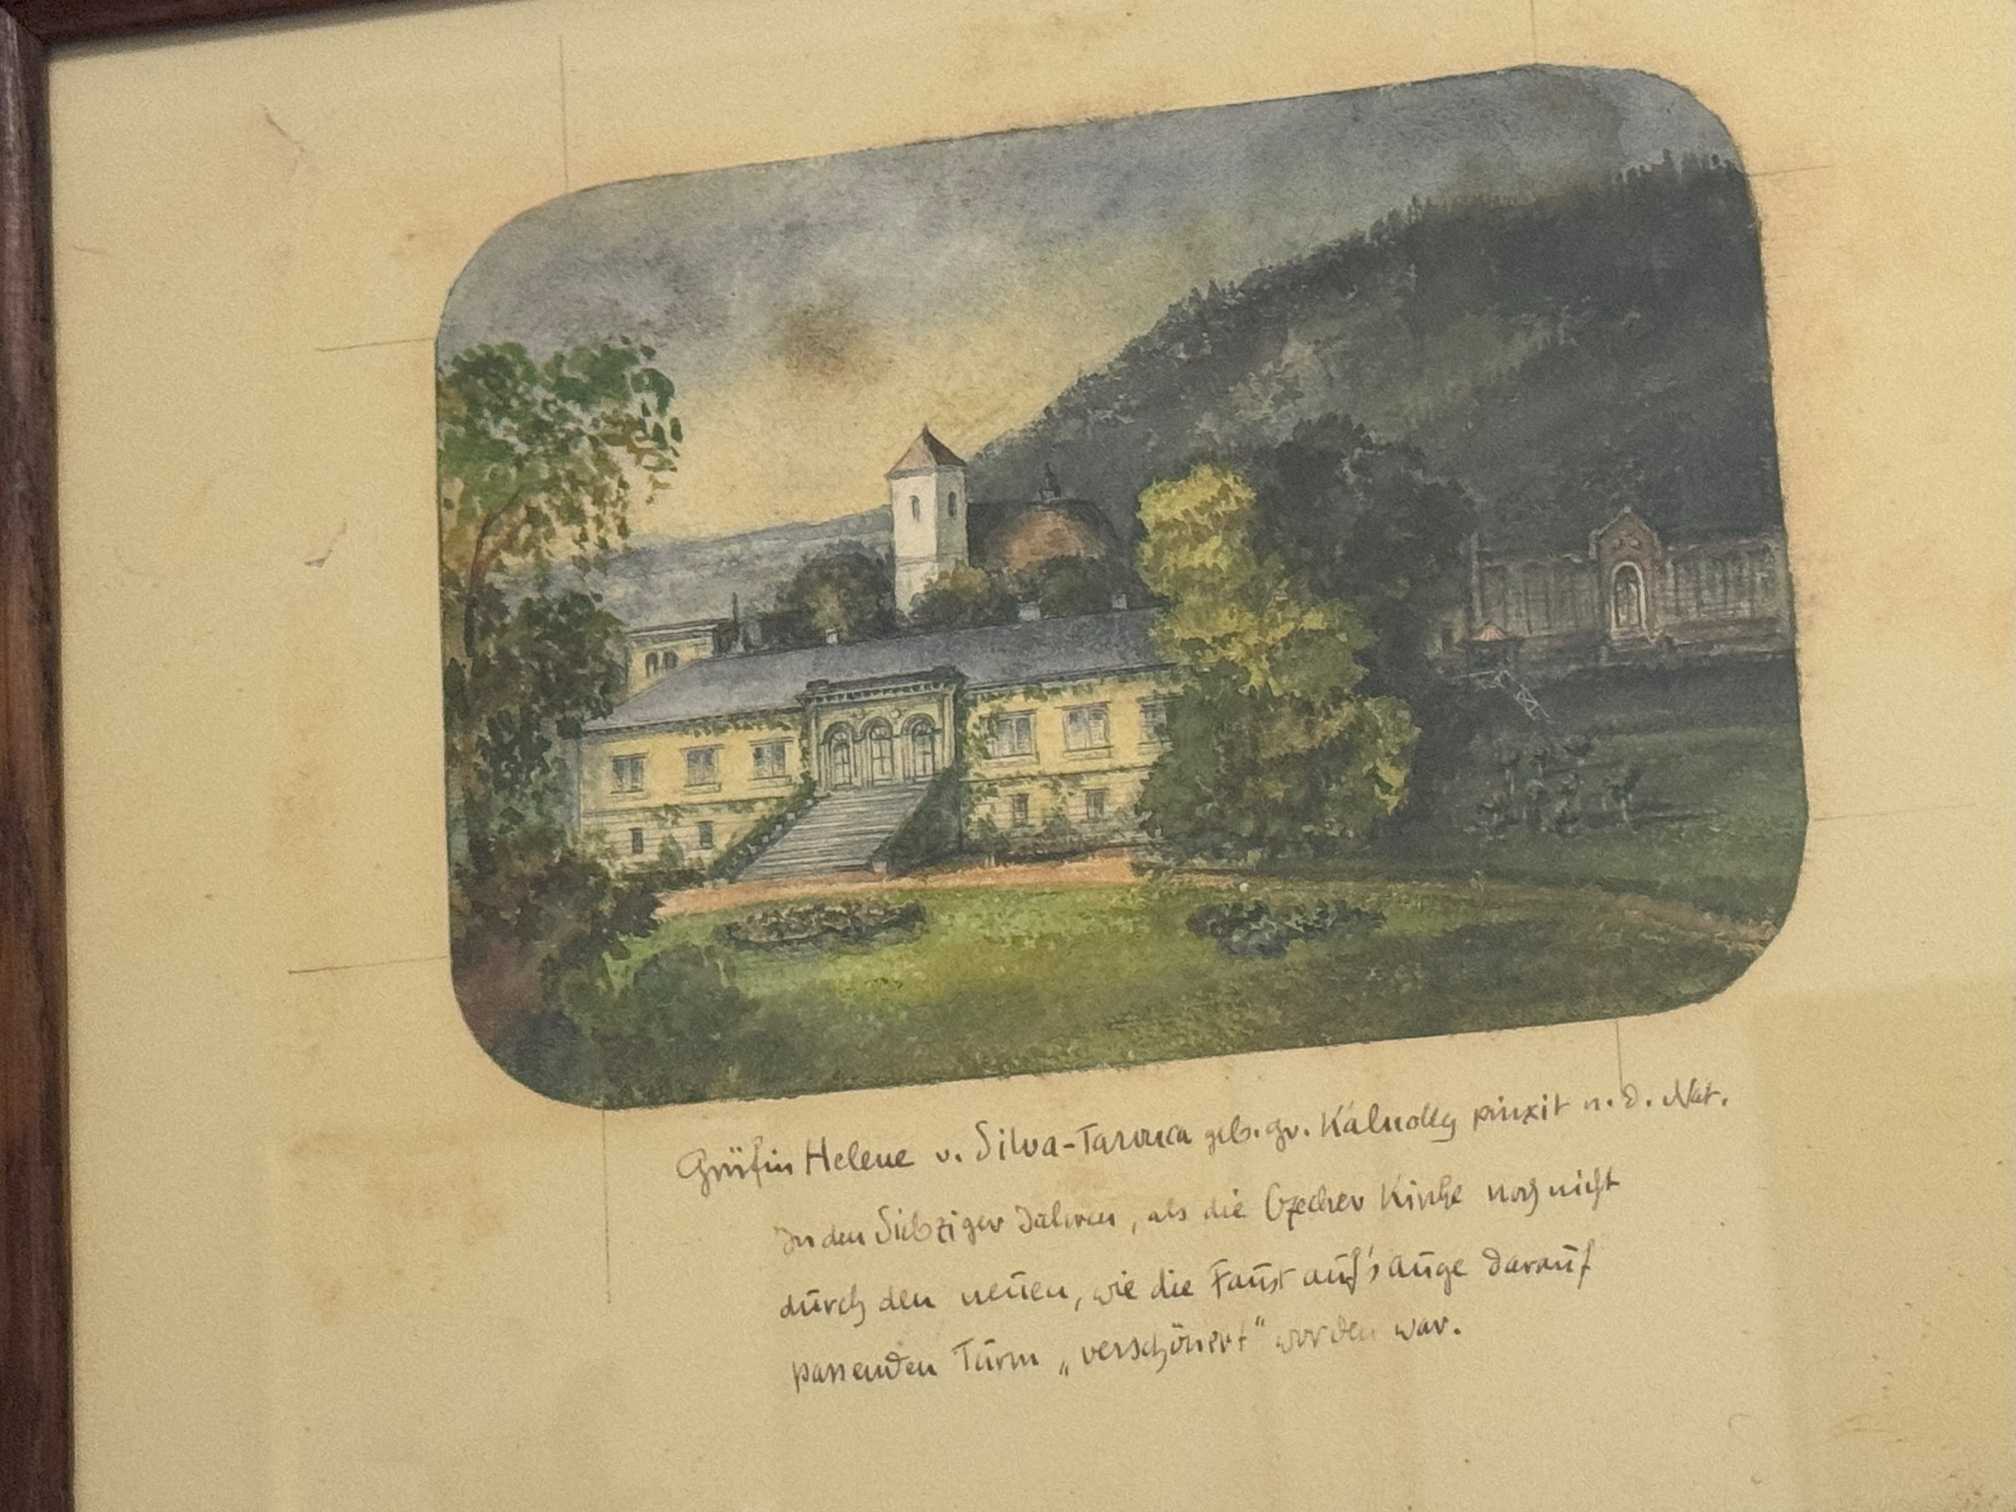 Gräfin Helene v. Silva-Tarouca geb. Gr. Kálnoky pinxit n. d. Nat.
In den Siebziger Jahren, als die Czecher Kirche noch nicht
durch den neuen, wie die Faust auf's Auge darauf
passenden Turm „verschönert“ worden war.